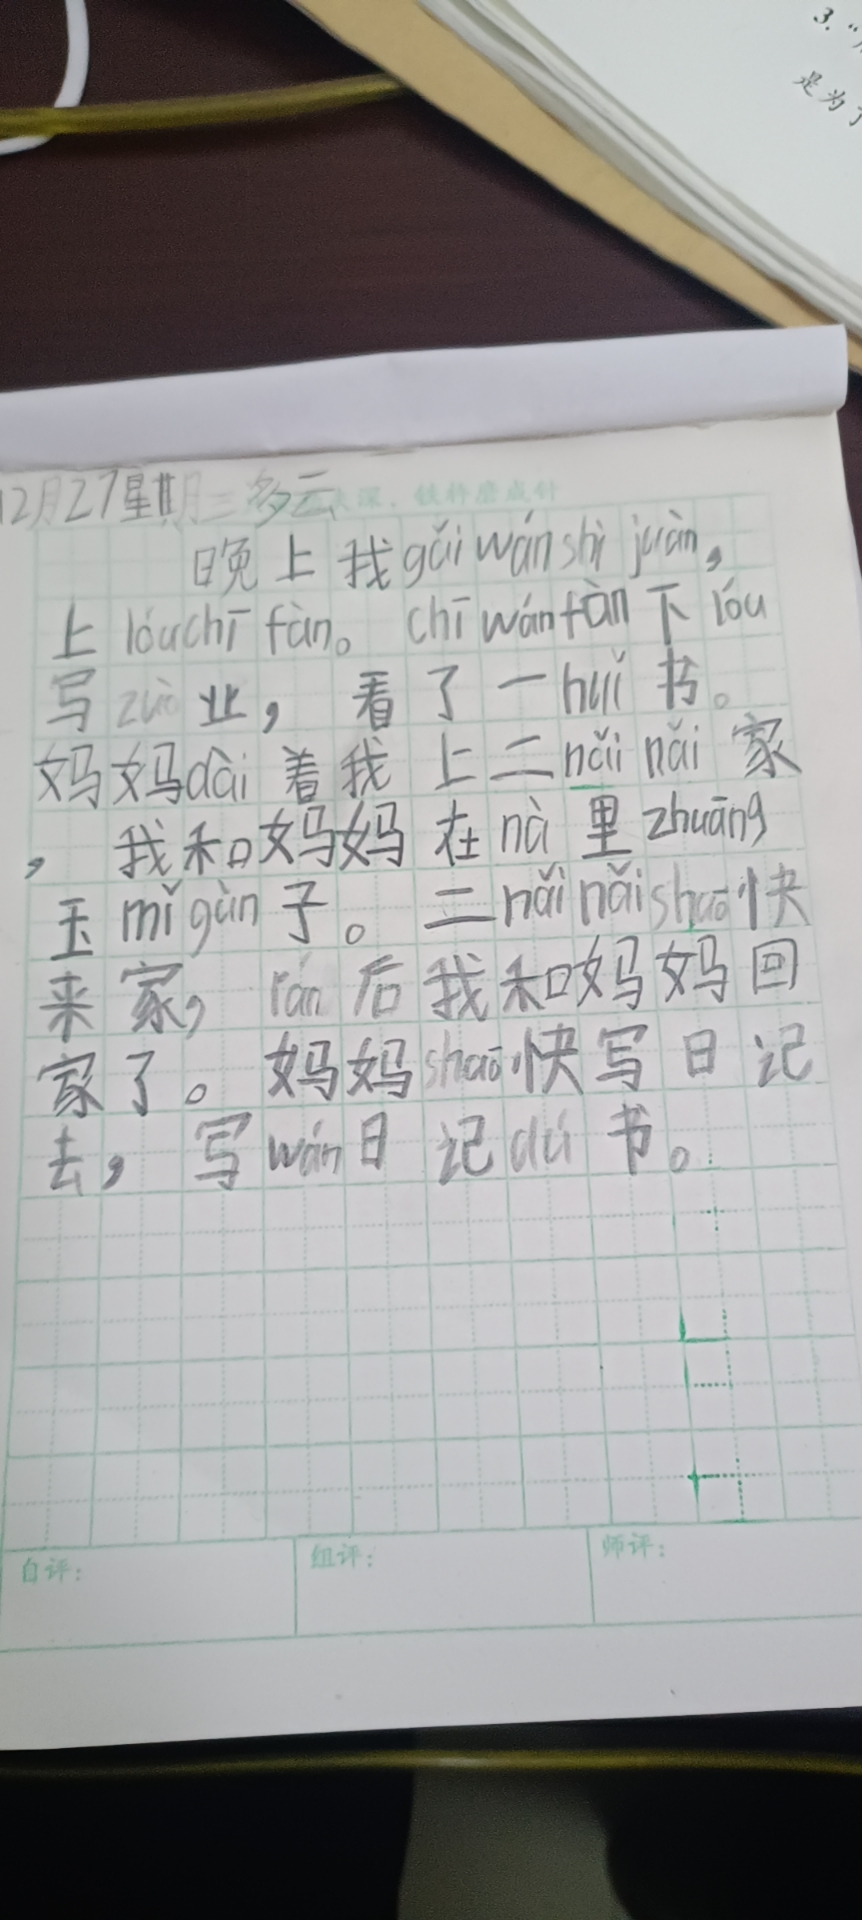 3. "
是为了
12月27星期三多云
深，铁杵磨成针
晚上我gǎi wán shì juàn，
上lóu chī fàn。chī wán fàn下lóu
写zuò业，看了一huǐ书。
妈妈dài着我上二nǎi nǎi家
，我和妈妈在nà里zhuāng
玉mǐ gùn子。二nǎi nǎi shuō快
来家，rán后我和妈妈回
家了。妈妈shuō快写日记
去，写wán日记dú书。
自评： 组评： 师评：